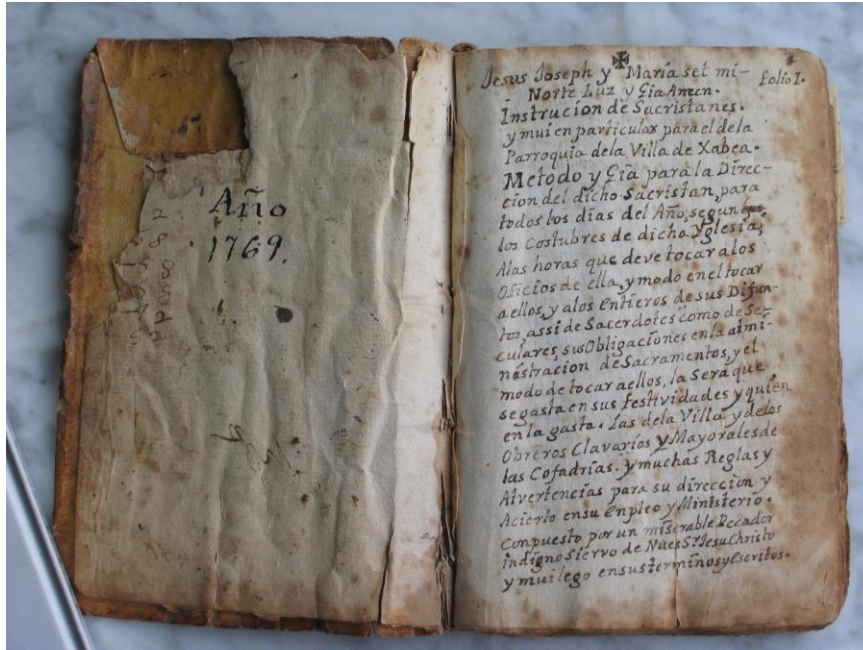 Año
1769.
Jesus Joseph y Maria set mi-
folio 1.
Norte Luz y Gia Amen.
Instrucion de Sacristanes.
y mui en particular para el dela
Parroquia dela Villa de Xabea.
Metodo y Gia para la Direc-
cion del dicho Sacristan, para
todos los dias del Año, segun
los Costubres de dicha Yglesia,
Alas horas que deve tocar alos
Oficios de ella, y modo enel tocar
aellos, y alos Entieros de sus Difun-
tos, assi de Sacerdotes como de Se-
culares, sus Obligaciones en la aimi-
nistracion de Sacramentos, y el
modo de tocar aellos, la Sera que
se gasta en sus festividades y quien
en la gasta. Las dela Villa y delos
Obreros Clavarios y Mayorales de
las Cofadrias. y muchas Reglas y
Alvertencias para su direccion y
Acierto ensu Enpleo y Ministerio.
Conpuesto por un miserable Pecador
indigno Siervo de Nues Sr. Jesu Christo
y mui lego en sus terminos y Escritos.